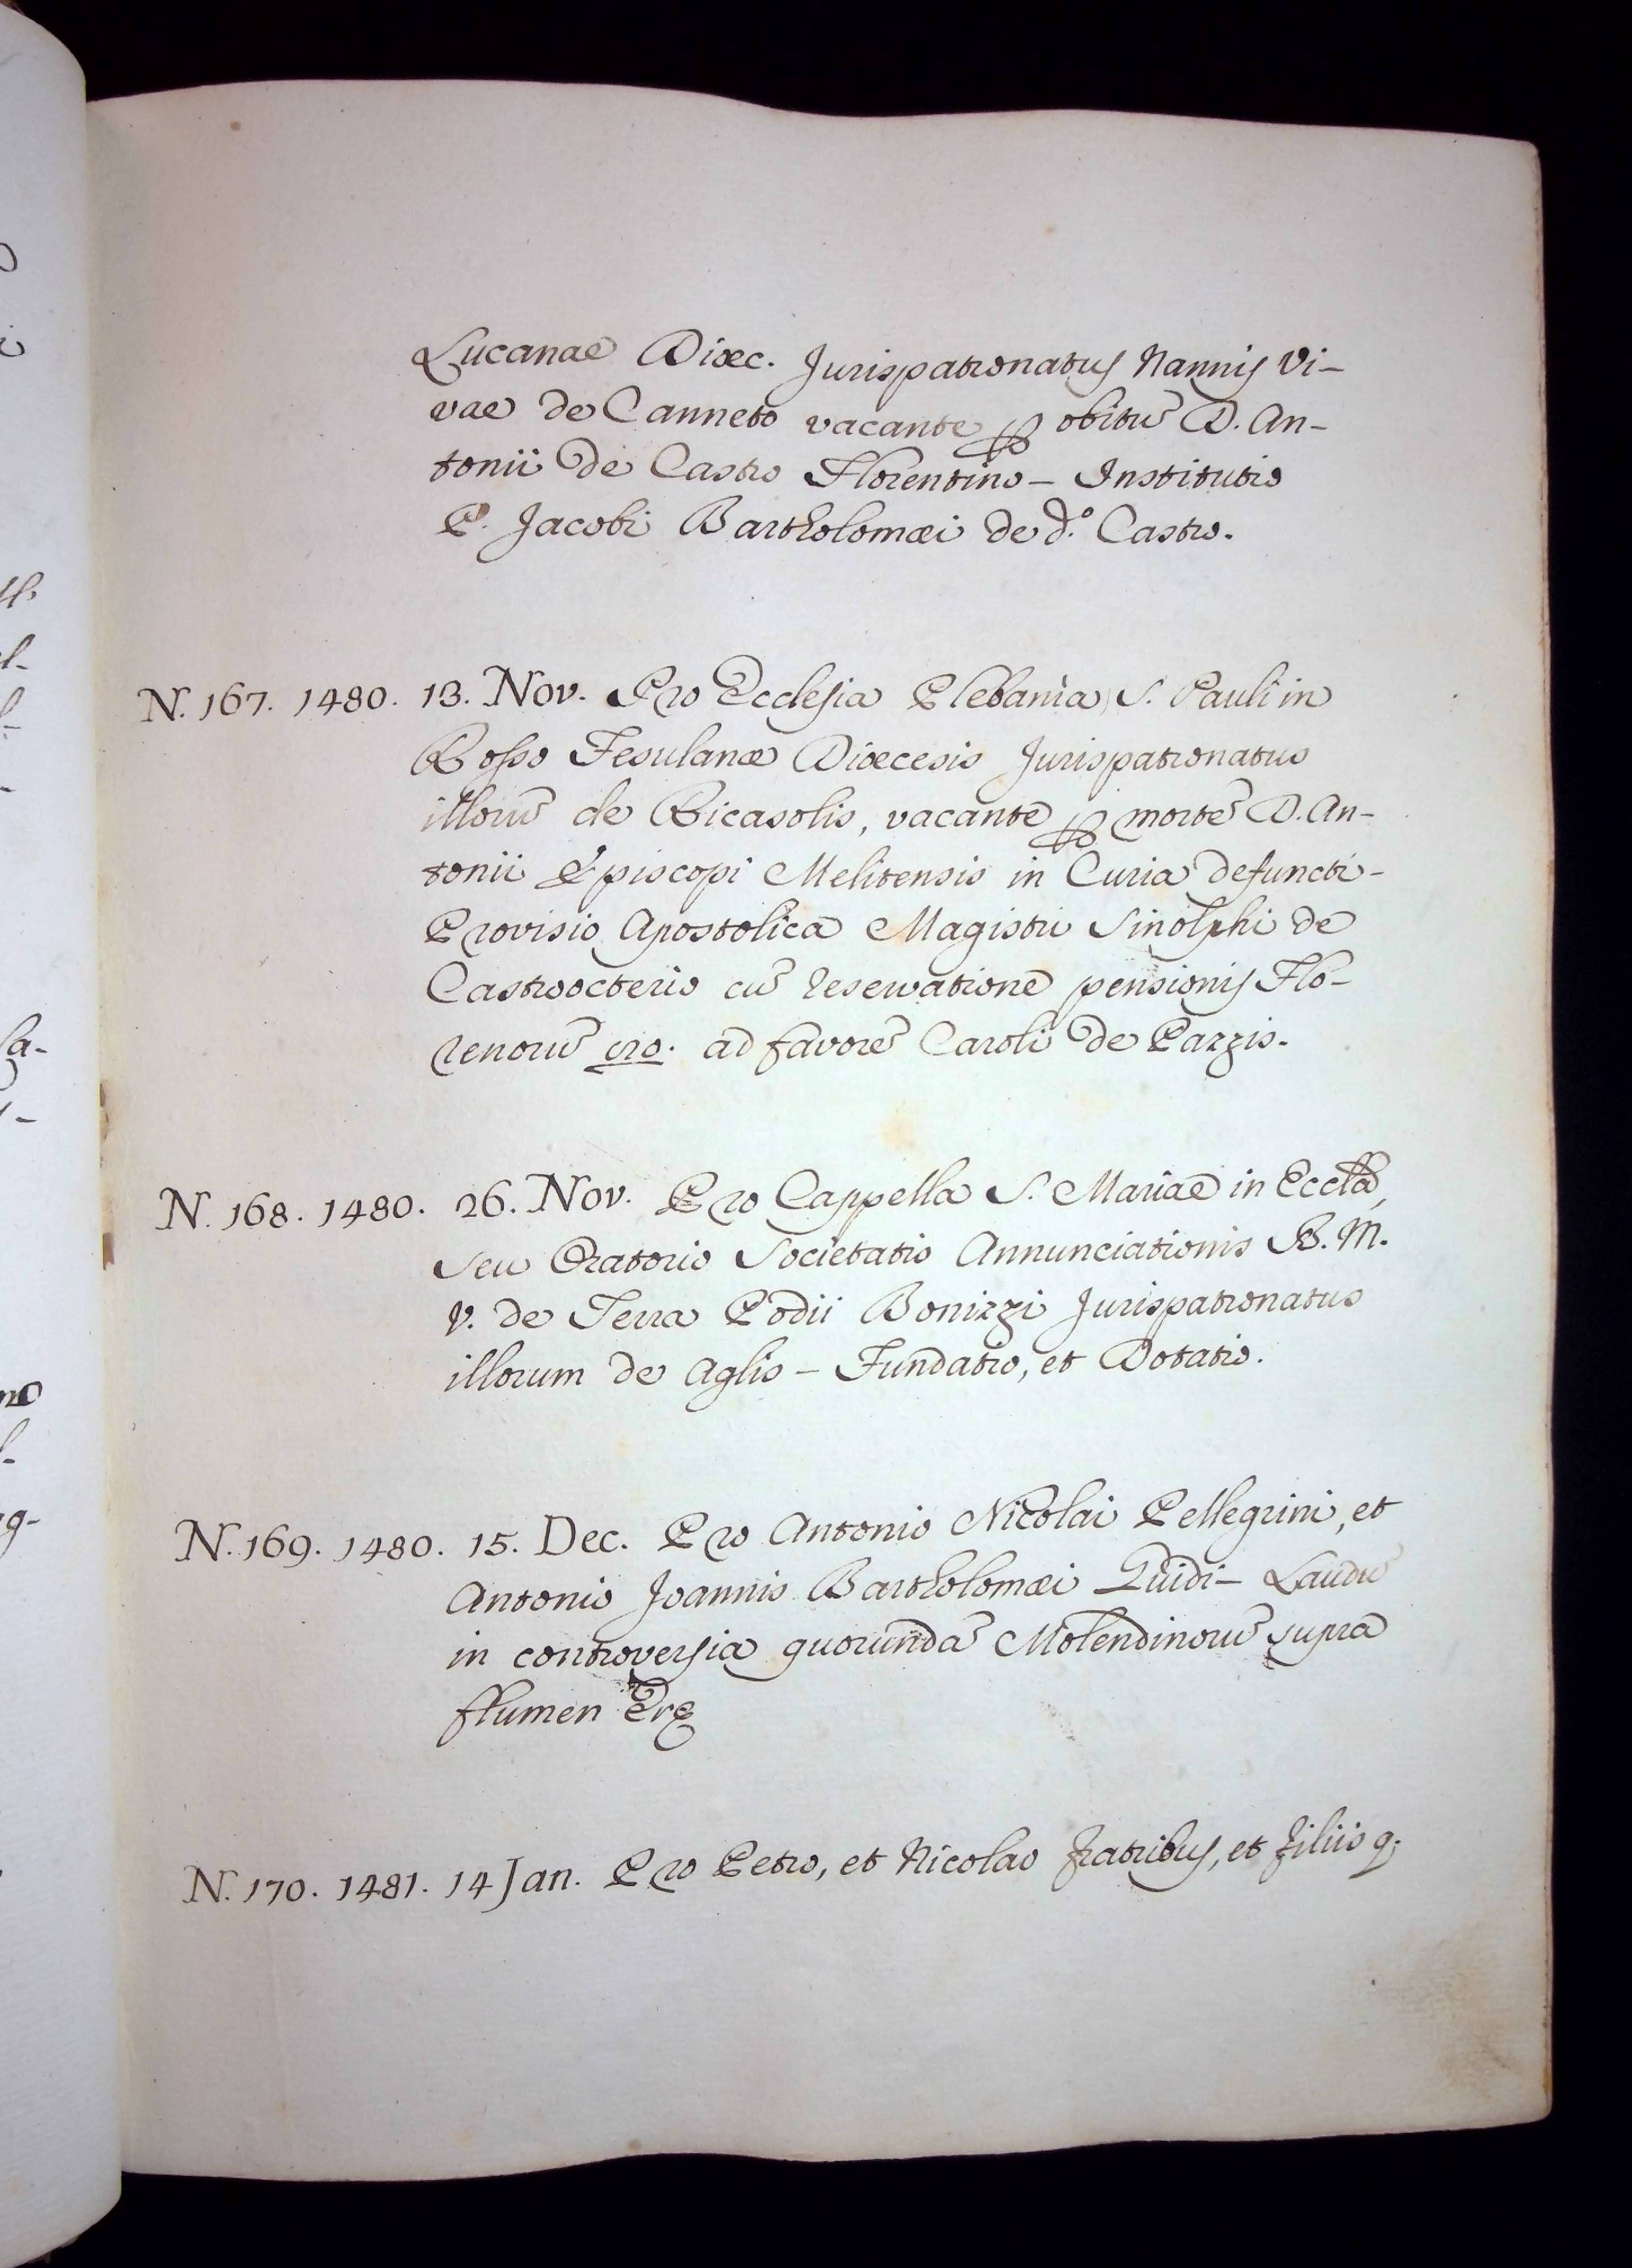 Lucanae Dioec. Jurispatronatus Nannis Vi-
vae de Canneto vacante ꝑ obitū D. An-
tonii de Castro Florentino - Institutio
P. Jacobi Bartholomæi de d.º Castro.
N. 167. 1480. 13. Nov. Pro Ecclesia Plebania S. Pauli in
Rosso Fesulanæ Dioecesis Jurispatronatus
illorū de Ricasolis, vacante ꝑ mortē D. An-
tonii Episcopi Melitensis in Curia defuncti-
Provisio Apostolica Magistri Sinolphi de
Castroocterio cū reservatione pensionis Flo-
renorū ad favorē Caroli de Pazzis.
N. 168. 1480. 26. Nov. Pro Cappella S. Mariae in Eccla,
seu Oratorio Societatis Annunciationis B. M.
V. de Terra Podii Bonizzi Jurispatronatus
illorum de Aglio - Fundatio, et Dotatio.
N. 169. 1480. 15. Dec. Pro Antonio Nicolai Pellegrini, et
Antonio Joannis Bartholomæi Guidi - Laudū
in controversia quorundā Molendinorū supra
flumen Erę
N. 170. 1481. 14 Jan. Pro Petro, et Nicolao fratribus, et filiis q.